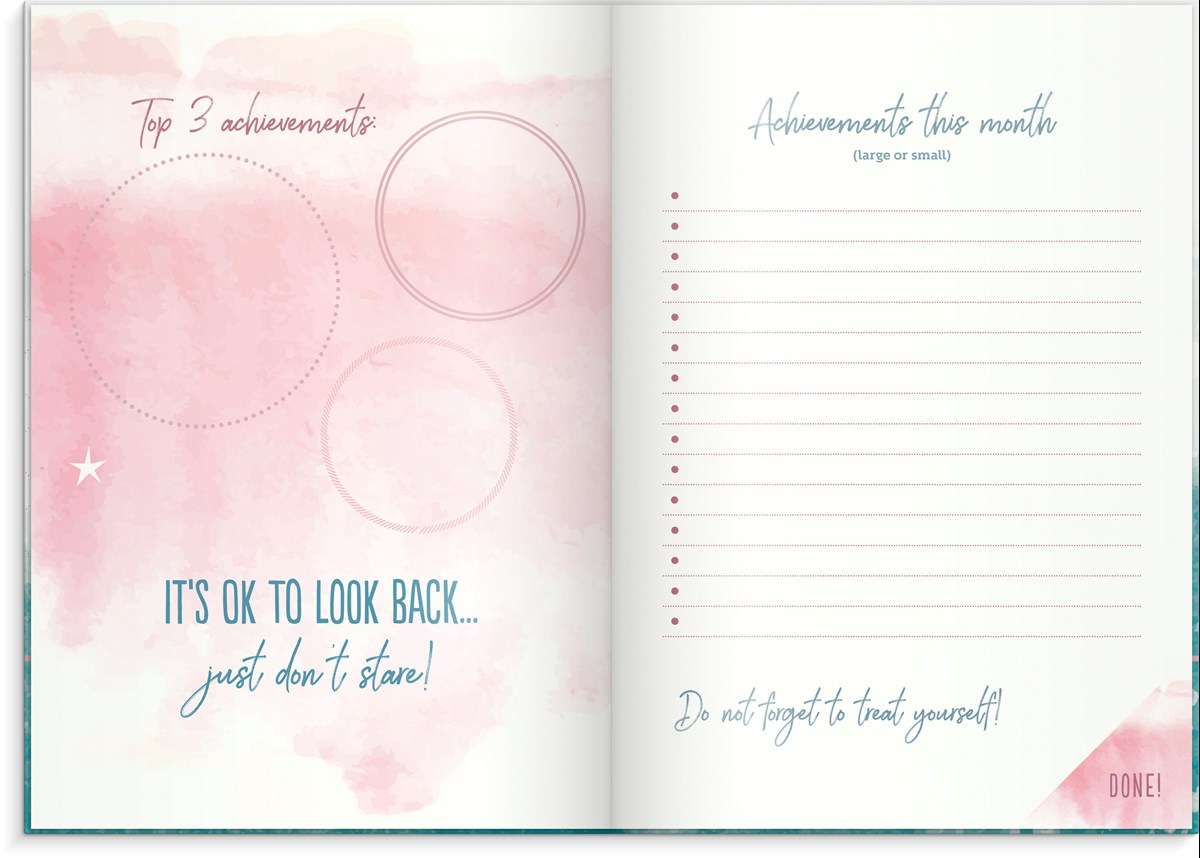 Top 3 achievements:
IT'S OK TO LOOK BACK...
just don't stare!
Achievements this month
(large or small)
Do not forget to treat yourself!
DONE!